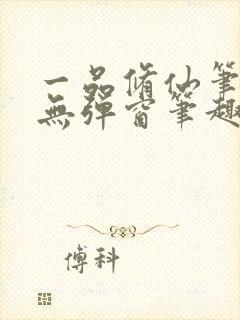 一品脩仙筆
無彈窗筆趣
傅科